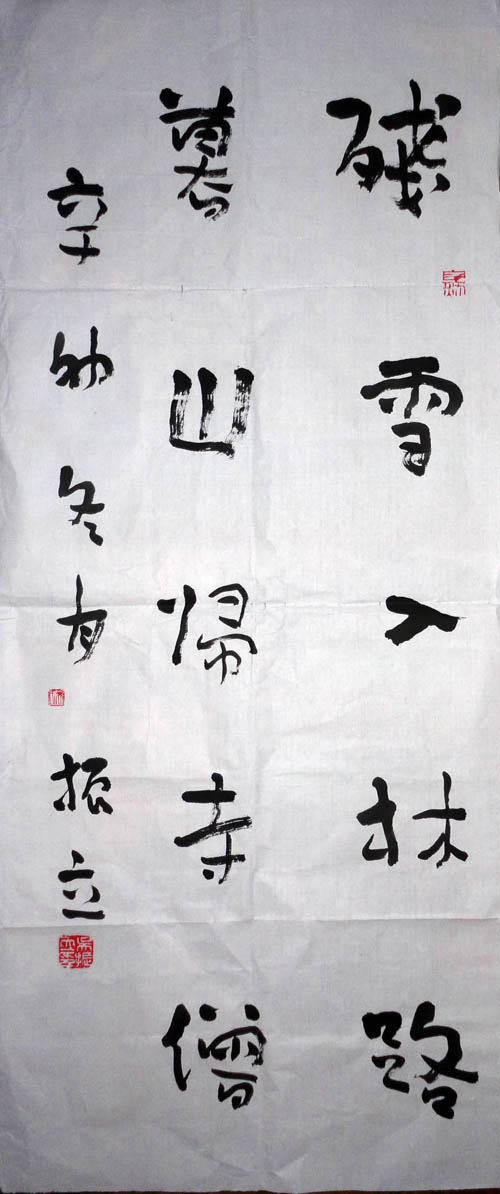 残雪入林路
暮山帰寺僧
辛卯冬月振立